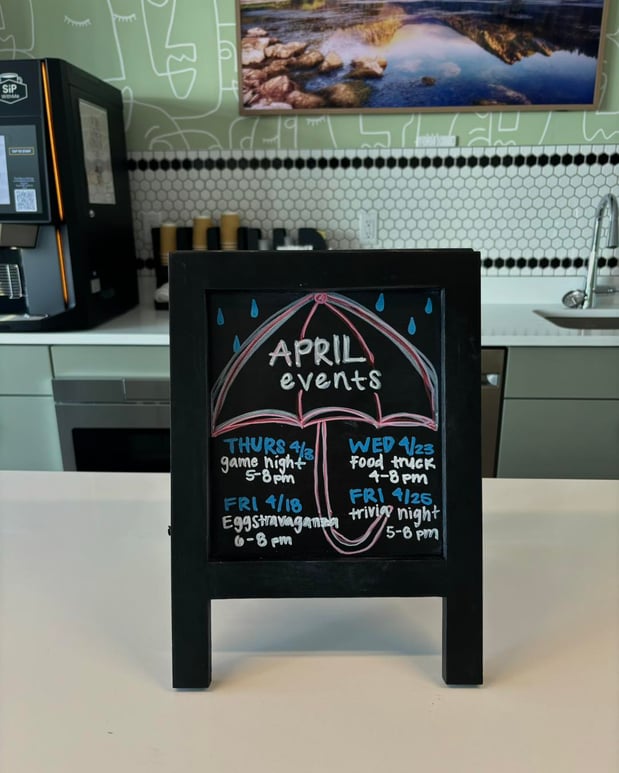 SiP
APRIL
events
THURS 4/3
game night
5-8pm
FRI 4/18
Eggstravaganza
6-8 pm
WED 4/23
food truck
4-8 pm
FRI 4/25
trivia night
5-8 pm